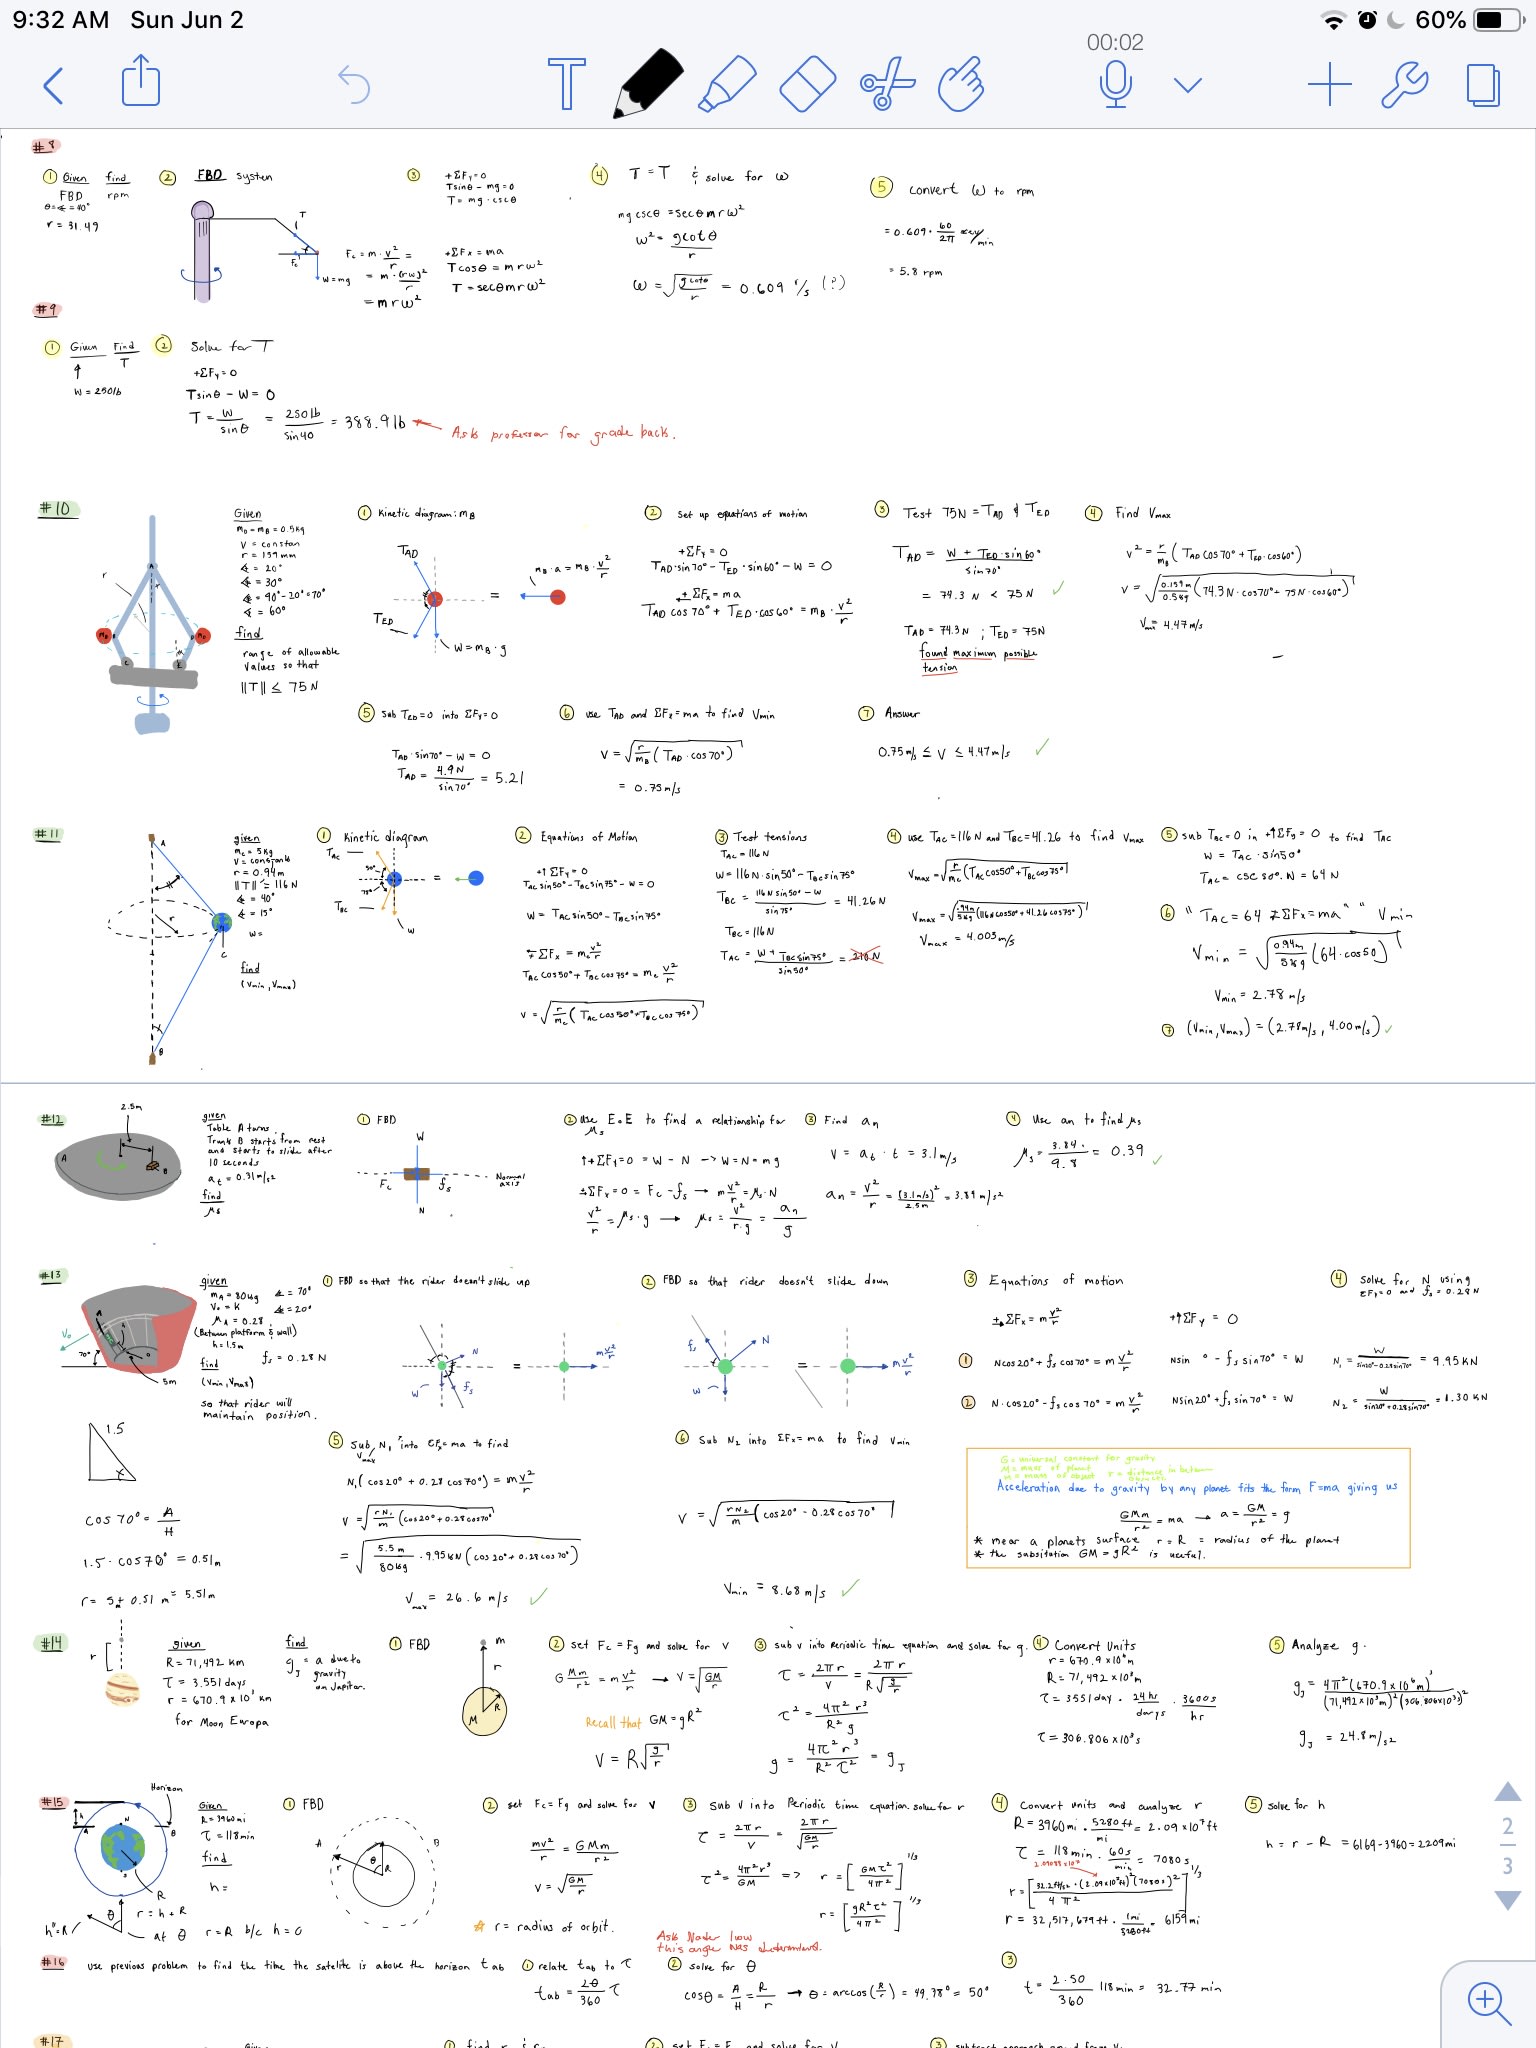 9:32 AM Sun Jun 2
60%
00:02
#8
① Given find
FBD rpm
θ=∡=40°
r = 31.49
② FBD system
T
Fc
W=mg
Fc = m·v²/r =
= m·(rω)²/r
= mrω²
③ +ΣFy=0
Tsinθ - mg=0
T= mg·cscθ
+ΣFx=ma
Tcosθ = mrω²
T = secθmrω²
④ T = T & solve for ω
mgcscθ = secθmrω²
ω² = gcotθ/r
ω = √(gcotθ/r) = 0.609 r/s (?)
⑤ convert ω to rpm
= 0.609 · 60/2π rev/min
= 5.8 rpm
#9
① Given Find
T
W = 250lb
② Solve for T
+ΣFy=0
Tsinθ - W = 0
T = W/sinθ = 250lb/sin40 = 388.9lb
Ask professor for grade back.
#10
Given
mD=mB=0.5kg
V = constan
r = 159mm
∡ = 20°
∡ = 30°
∡ = 90°-20°=70°
∡ = 60°
find
range of allowable
values so that
||T|| ≤ 75N
① Kinetic diagram: mB
TAD
TED
W=mB·g
=
mB·a = mB·v²/r
② Set up equations of motion
+ΣFy=0
TAD·sin70° - TED·sin60 - W = 0
+ΣFx=ma
TAD cos70° + TED·cos60° = mB·v²/r
③ Test 75N = TAD & TED
TAD = W + TED·sin60°/sin70°
= 74.3N < 75N ✓
TAD=74.3N ; TED=75N
found maximum possible
tension
④ Find Vmax
v² = r/mB (TAD cos70° + TED·cos60°)
v = √(0.159m/0.5kg (74.3N·cos70° + 75N·cos60°))
Vmax = 4.47m/s
⑤ Sub TED=0 into ΣFy=0
TAD·sin70° - W = 0
TAD = 4.9N/sin70° = 5.21
⑥ use TAD and ΣFx=ma to find Vmin
V = √(r/mB (TAD·cos70°))
= 0.75m/s
⑦ Answer
0.75m/s ≤ V ≤ 4.47m/s ✓
#11
A
r
C
B
given
mc = 5kg
V = constant
r = 0.94m
||T|| = 116N
∡ = 40°
∡ = 15°
W =
find
(Vmin, Vmax)
① Kinetic diagram
TAC
50°
75°
TBC
W
=
② Equations of Motion
+↑ΣFy=0
TAC sin50° - TBC sin75° - W = 0
W = TAC sin50° - TBC sin75°
ΣFx = mc v²/r
TAC cos50° + TBC cos75° = mc v²/r
v = √(r/mc (TAC cos50° + TBC cos75°))
③ Test tensions
TAC = 116N
W = 116N·sin50° - TBC sin75°
TBC = 116N sin50° - W/sin75° = 41.26N
TBC = 116N
TAC = W + TBC sin75°/sin50° = 216N
④ use TAC=116N and TBC=41.26 to find Vmax
Vmax = √(r/mc (TAC cos50° + TBC cos75°))
Vmax = √(.94m/5kg (116N cos50° + 41.26 cos75°))
Vmax = 4.003m/s
⑤ sub TBC=0 in +↑ΣFy=0 to find TAC
W = TAC·sin50°
TAC = csc50°·W = 64N
⑥ "TAC=64 → ΣFx=ma" "Vmin
Vmin = √(0.94m/5kg (64·cos50))
Vmin = 2.78m/s
⑦ (Vmin, Vmax) = (2.78m/s, 4.00m/s) ✓
#12
2.5m
A
B
given
Table A turns.
Trunk B starts from rest
and starts to slide after
10 seconds
at = 0.31m/s²
find
μs
① FBD
W
Fc
fs
N
Normal axis
② use E.o.E to find a relationship for
μs
↑+ΣFy=0 = W - N → W=N=mg
ΣFx=0 = Fc - fs → m v²/r = μs·N
v²/r = μs·g → μs = v²/r·g = an/g
③ Find an
V = at·t = 3.1m/s
an = v²/r = (3.1m/s)²/2.5m = 3.84m/s²
④ Use an to find μs
μs = 3.84/9.8 = 0.39 ✓
#13
A
Vo
70°
5m
given
mA = 80kg ∡ = 70°
Vo = k ∡ = 20°
μs = 0.28
(Between platform & wall)
h = 1.5m
fs = 0.28N
find
(Vmin, Vmax)
so that rider will
maintain position.
① FBD so that the rider doesn't slide up
N
W
fs
=
m v²/r
② FBD so that rider doesn't slide down
fs
N
W
=
m v²/r
③ Equations of motion
ΣFx = m v²/r +↑ΣFy = 0
① Ncos20° + fs cos70° = m v²/r Nsin ° - fs sin70° = W
② N·cos20° - fs cos70° = m v²/r Nsin20° + fs sin70° = W
④ Solve for N using
ΣFy=0 and fs=0.28N
N₁ = W/sin20°-0.28sin70° = 9.95KN
N₂ = W/sin20°+0.28sin70° = 1.30KN
1.5
cos70° = A/H
1.5·cos70° = 0.51m
r = 5m + 0.51m = 5.51m
⑤ Sub N₁ into ΣFx=ma to find
Vmax
N₁(cos20° + 0.28cos70°) = m v²/r
V = √(rN₁/m (cos20° + 0.28cos70°))
= √(5.5m/80kg · 9.95kN (cos20° + 0.28cos70°))
Vmax = 26.6m/s ✓
⑥ Sub N₂ into ΣFx=ma to find Vmin
V = √(rN₂/m (cos20° - 0.28cos70°))
Vmin = 8.68m/s ✓
G = universal constant for gravity
M = mass of planet
m = mass of object r = distance in between
Acceleration due to gravity by any planet fits the form F=ma giving us
GMm/r² = ma → a = GM/r² = g
* near a planets surface r=R = radius of the planet
* the subsitution GM=gR² is useful.
#14
r
given
R = 71,492 km
τ = 3.551days
r = 670.9x10³ km
for Moon Europa
find
gj = a due to
gravity
on Jupitar.
① FBD
m
r
M
R
② set Fc=Fg and solve for v
G Mm/r² = m v²/r → v = √(GM/r)
Recall that GM=gR²
V = R√(g/r)
③ sub v into Periodic time equation and solve for g.
τ = 2πr/V = 2πr/R√(g/r)
τ² = 4π²r³/R²g
g = 4π²r³/R²τ² = gJ
④ Convert units
r = 670.9x10⁶m
R = 71,492x10³m
τ = 3.551day · 24hr/days · 3600s/hr
τ = 306.806x10³s
⑤ Analyze g.
gJ = 4π²(670.9x10⁶m)³/(71,492x10³m)²(306.806x10³s)²
gJ = 24.8m/s²
#15
Horizon
h
A
N
B
R
θ
h"=R
r = h+R
at θ r=R b/c h=0
Given
R = 3960mi
τ = 118min
find
h =
① FBD
A
B
r
θ
R
② set Fc=Fg and solve for v
mv²/r = GMm/r²
v = √(GM/r)
☆ r = radius of orbit.
③ Sub v into Periodic time equation. solve for r
τ = 2πr/V = 2πr/√(GM/r)
τ² = 4π²r³/GM => r = [GMτ²/4π²]^1/3
r = [gR²τ²/4π²]^1/3
④ Convert units and analyze r
R = 3960mi · 5280ft/mi = 2.09x10⁷ft
τ = 118min · 60s/min = 7080s
r = [32.2ft/s²·(2.09x10⁷ft)²(7080s)²/4π²]^1/3
r = 32,517,679ft · 1mi/5280ft = 6159mi
⑤ solve for h
h = r - R = 6169-3960=2209mi
Ask Nader how
this angle was determined.
#16 use previous problem to find the time the satelite is above the horizon tab
① relate tab to τ
tab = 2θ/360 τ
② solve for θ
cosθ = A/H = R/r → θ = arccos(R/r) = 49.78° = 50°
③ t = 2·50/360 118min = 32.77 min
#17
2
3